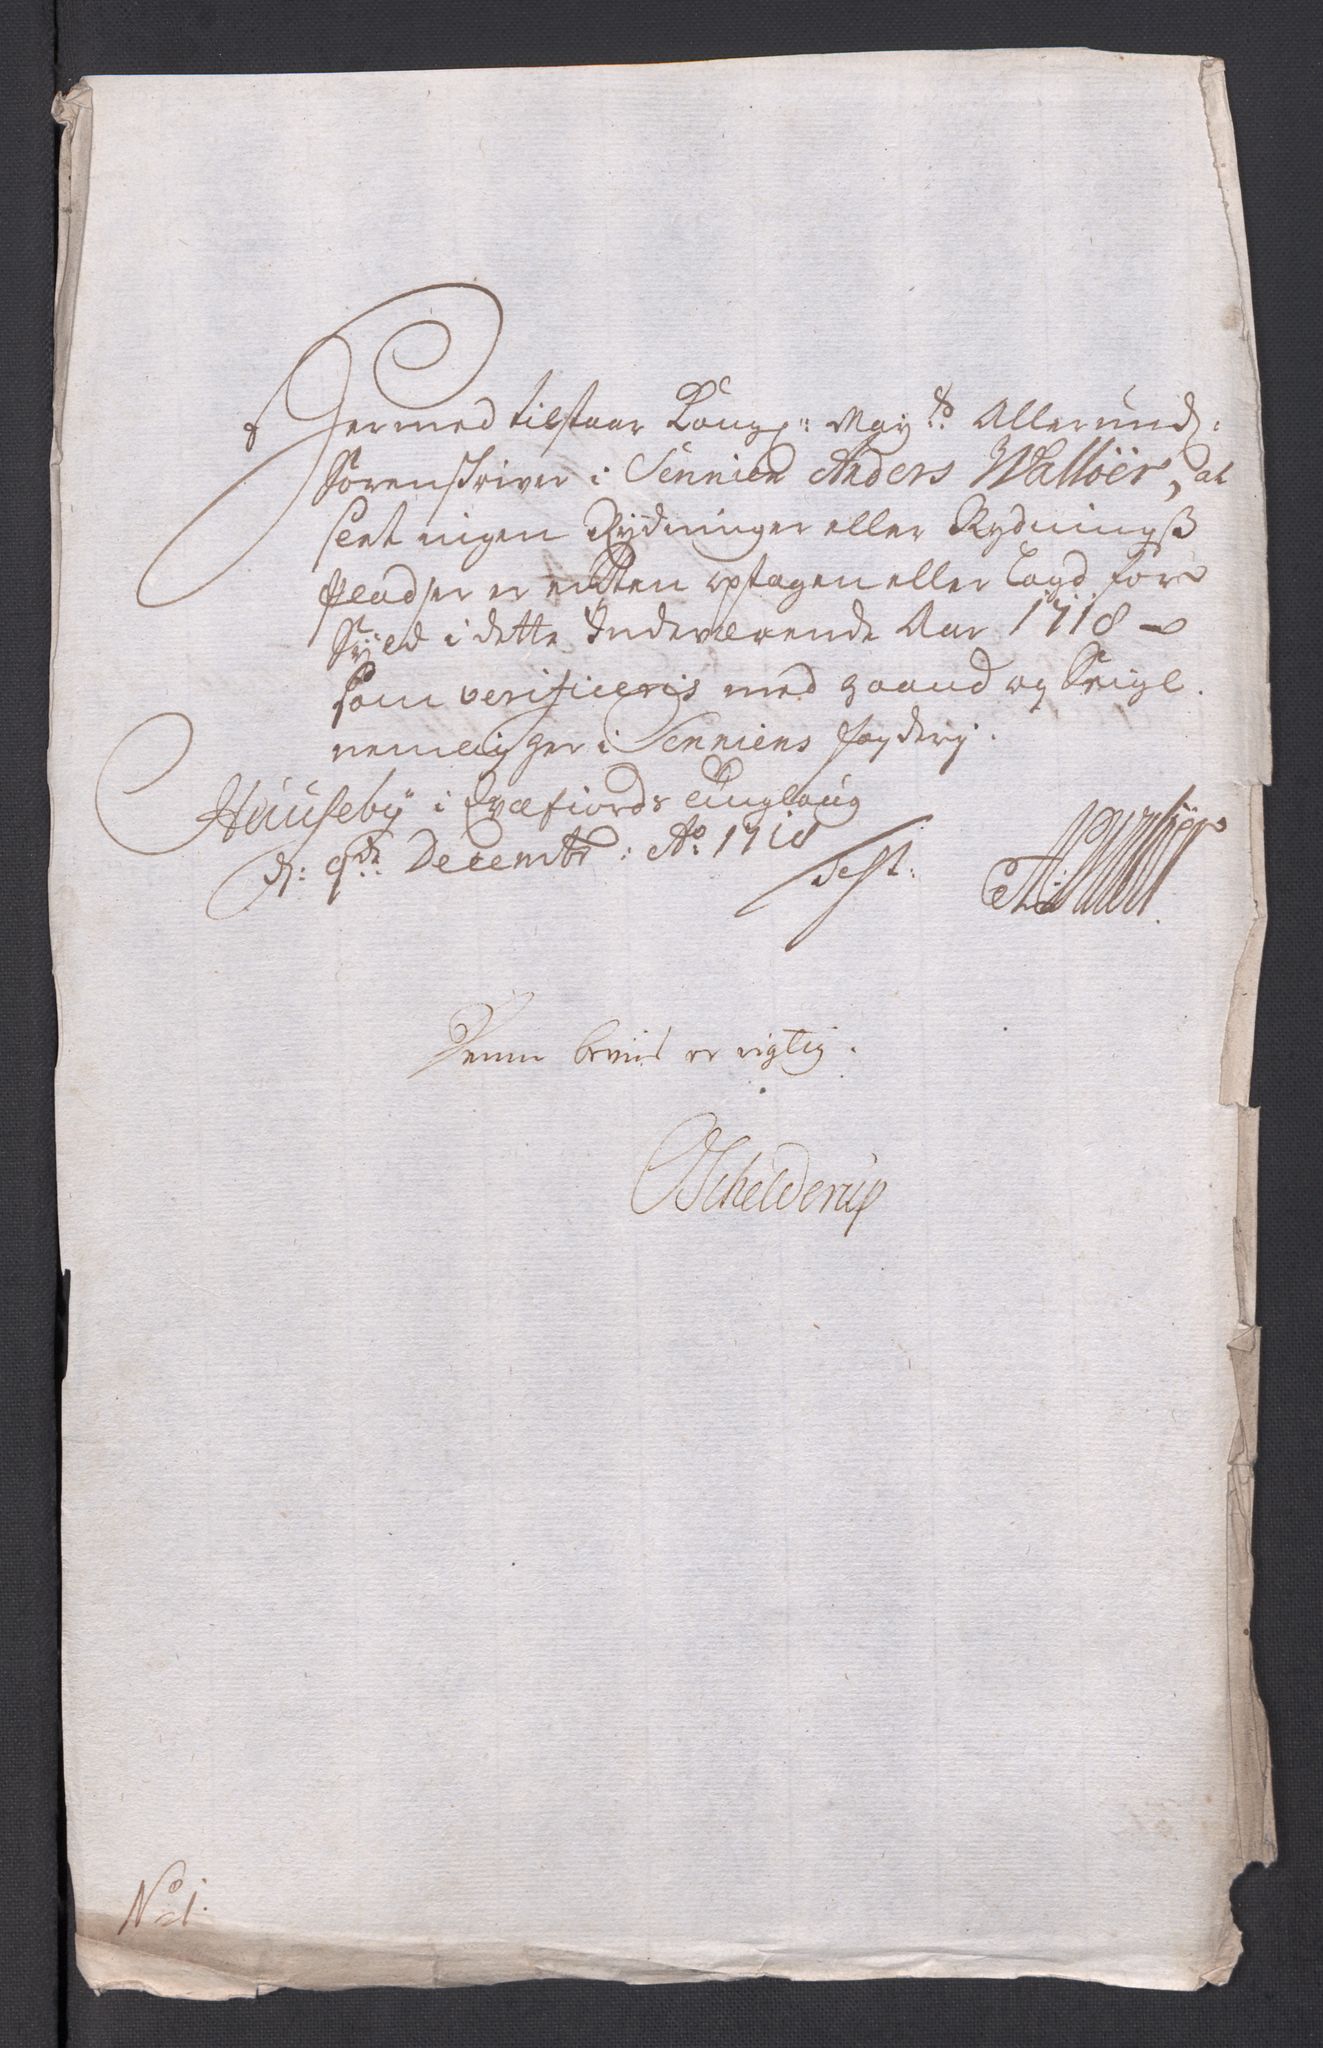 Hermed tilstaar Kongl: May:ts Allerund:
Sorenskriver i Sennien Anders Walløer, at
slet ingen Rydninger eller Rydningß
pladser er enten optagen eller lagd for
Skyld i dette Indeværende Aar 1718
som verificeris med haand og Seigl.
nemlig her i Senniens fogderj.
Hauseby i Qvæfiords tinglaug
d: 9de Decembr: Ao 1718
Test:
A: Walløer
Denne beviis er rigtig.
OSchelderup
No 1.